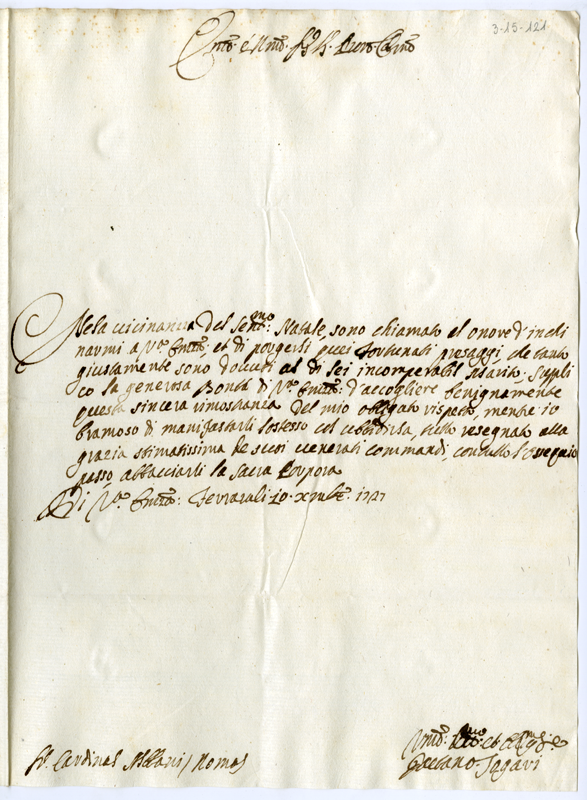 3-15-121
Emo: e Rmo: Sig. Pron. Colmo
Nela vicinanza del Senmo: Natale, sono chiamato el onore d' incli
narmi a Vra Emza: et di porgerli queei fortunati presaggi, che tanto
giustamente sono dovuti al di lei incomperabil Merito. Suppli
co la generosa Bontà di Vra Emza: d'accogliere benignamente
questa sincera rimostranza del mio obligato rispetto, mentre io
bramoso di manifestarli lo stesso col ubbidirla, resto resegnato alla
grazia stimatissima de suoi venerati commandi, con tutto l'ossequio
passo abbacciarli la Sacra Porpora
Di Vra Emza: Ferrara li 10. xmbre 1727
Sr. Cardinal Albani / Roma
Umo:
Gaetano